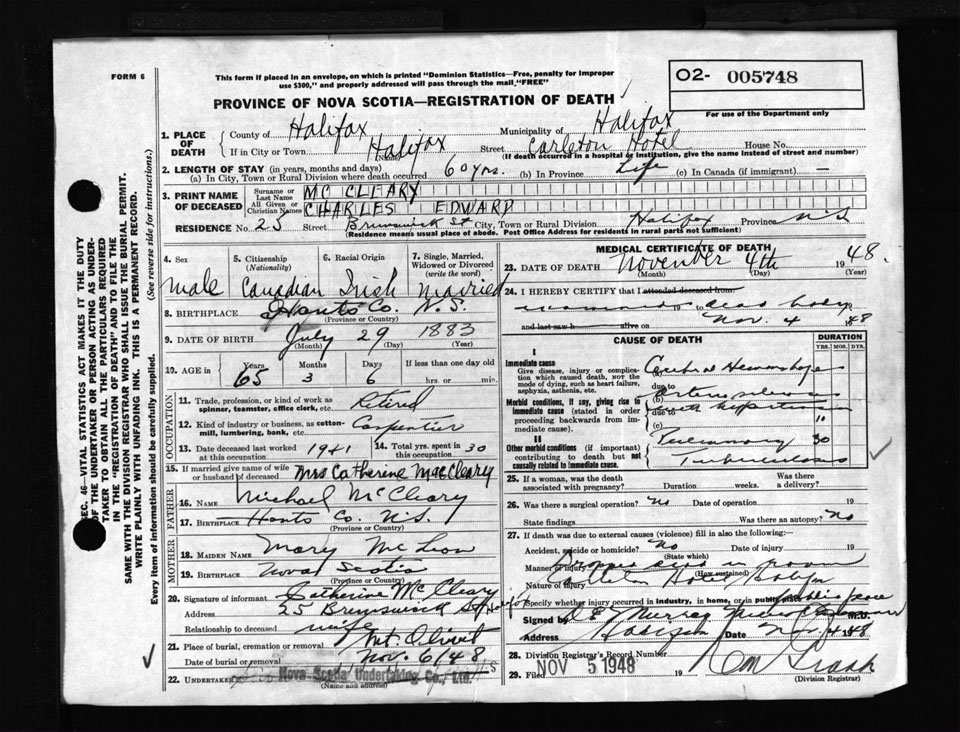 FORM 6
This form if placed in an envelope, on which is printed "Dominion Statistics—Free, penalty for improper
use $300," and properly addressed will pass through the mail "FREE"
O2- 005748
For use of the Department only
PROVINCE OF NOVA SCOTIA—REGISTRATION OF DEATH
SEC. 46—VITAL STATISTICS ACT MAKES IT THE DUTY
OF THE UNDERTAKER OR PERSON ACTING AS UNDER-
TAKER TO OBTAIN ALL THE PARTICULARS REQUIRED
IN THE "REGISTRATION OF DEATH" AND TO FILE THE
SAME WITH THE DIVISION REGISTRAR WHO SHALL ISSUE THE BURIAL PERMIT.
WRITE PLAINLY WITH UNFADING INK. THIS IS A PERMANENT RECORD.
Every item of information should be carefully supplied. (See reverse side for instructions.)
1. PLACE OF DEATH County of Halifax Municipality of Halifax
If in City or Town Halifax Street Carleton Hotel House No.
(Name) (If death occurred in a hospital or institution, give the name instead of street and number)
2. LENGTH OF STAY (in years, months and days)
(a) In City, Town or Rural Division where death occurred 60 yrs. (b) In Province Life (c) In Canada (if immigrant) —
3. PRINT NAME OF DECEASED Surname or Last Name MC CLEARY
All Given or Christian Names CHARLES EDWARD
RESIDENCE No. 25 Street Brunswick St City, Town or Rural Division Halifax Province N.S
(Residence means usual place of abode. Post Office Address for residents in rural parts not sufficient)
4. Sex 5. Citizenship (Nationality) 6. Racial Origin 7. Single, Married, Widowed or Divorced (write the word)
male Canadian Irish married
8. BIRTHPLACE Hants Co. N.S.
(Province or Country)
9. DATE OF BIRTH July 29 1883
(Month) (Day) (Year)
10. AGE in Years Months Days If less than one day old
65 3 6 hrs. or min.
OCCUPATION
11. Trade, profession or kind of work as spinner, teamster, office clerk, etc. Retired
12. Kind of industry or business, as cotton-mill, lumbering, bank, etc. Carpenter
13. Date deceased last worked at this occupation 1941 14. Total yrs. spent in this occupation 30
15. If married give name of wife or husband of deceased Mrs Catherine McCleary
FATHER
16. NAME Michael McCleary
17. BIRTHPLACE Hants Co. N.S.
(Province or Country)
MOTHER
18. MAIDEN NAME Mary
19. BIRTHPLACE Nova Scotia
(Province or Country)
20. Signature of informant Catherine McCleary
Address 25 Brunswick St
Relationship to deceased wife
21. Place of burial, cremation or removal Mt. Olivet
Date of burial or removal Nov. 6/48
22. UNDERTAKER Nova Scotia Undertaking Co., Ltd.
(Name and address)
MEDICAL CERTIFICATE OF DEATH
23. DATE OF DEATH November 4th 1948.
(Month) (Day) (Year)
24. I HEREBY CERTIFY that I attended deceased from
dead body
and last saw h alive on Nov. 4 1948
CAUSE OF DEATH DURATION
YRS. MOS. DYS.
I
Immediate cause
Give disease, injury or complication which caused death, NOT the mode of dying, such as heart failure, asphyxia, asthenia, etc.
Cerebral Hemorrhage
due to
Morbid conditions, if any, giving rise to immediate cause (stated in order proceeding backwards from immediate cause).
(b) due to
(c)
10
II
Other morbid conditions (if important) contributing to death but not causally related to immediate cause.
Pulmonary 30
Tuberculosis
25. If a woman, was the death associated with pregnancy? Duration weeks. Was there a delivery?
26. Was there a surgical operation? No Date of operation 19
State findings Was there an autopsy? No
27. If death was due to external causes (violence) fill in also the following:
Accident, suicide or homicide? No Date of injury 19
(State which)
Manner of injury
(How sustained)
Nature of injury Carleton Hotel Halifax
Specify whether injury occurred in industry, in home, or in public place public place
Signed by M.D.
Address Halifax Date Nov 4 1948
28. Division Registrar's Record Number
29. Filed NOV 5 1948 19
(Division Registrar)